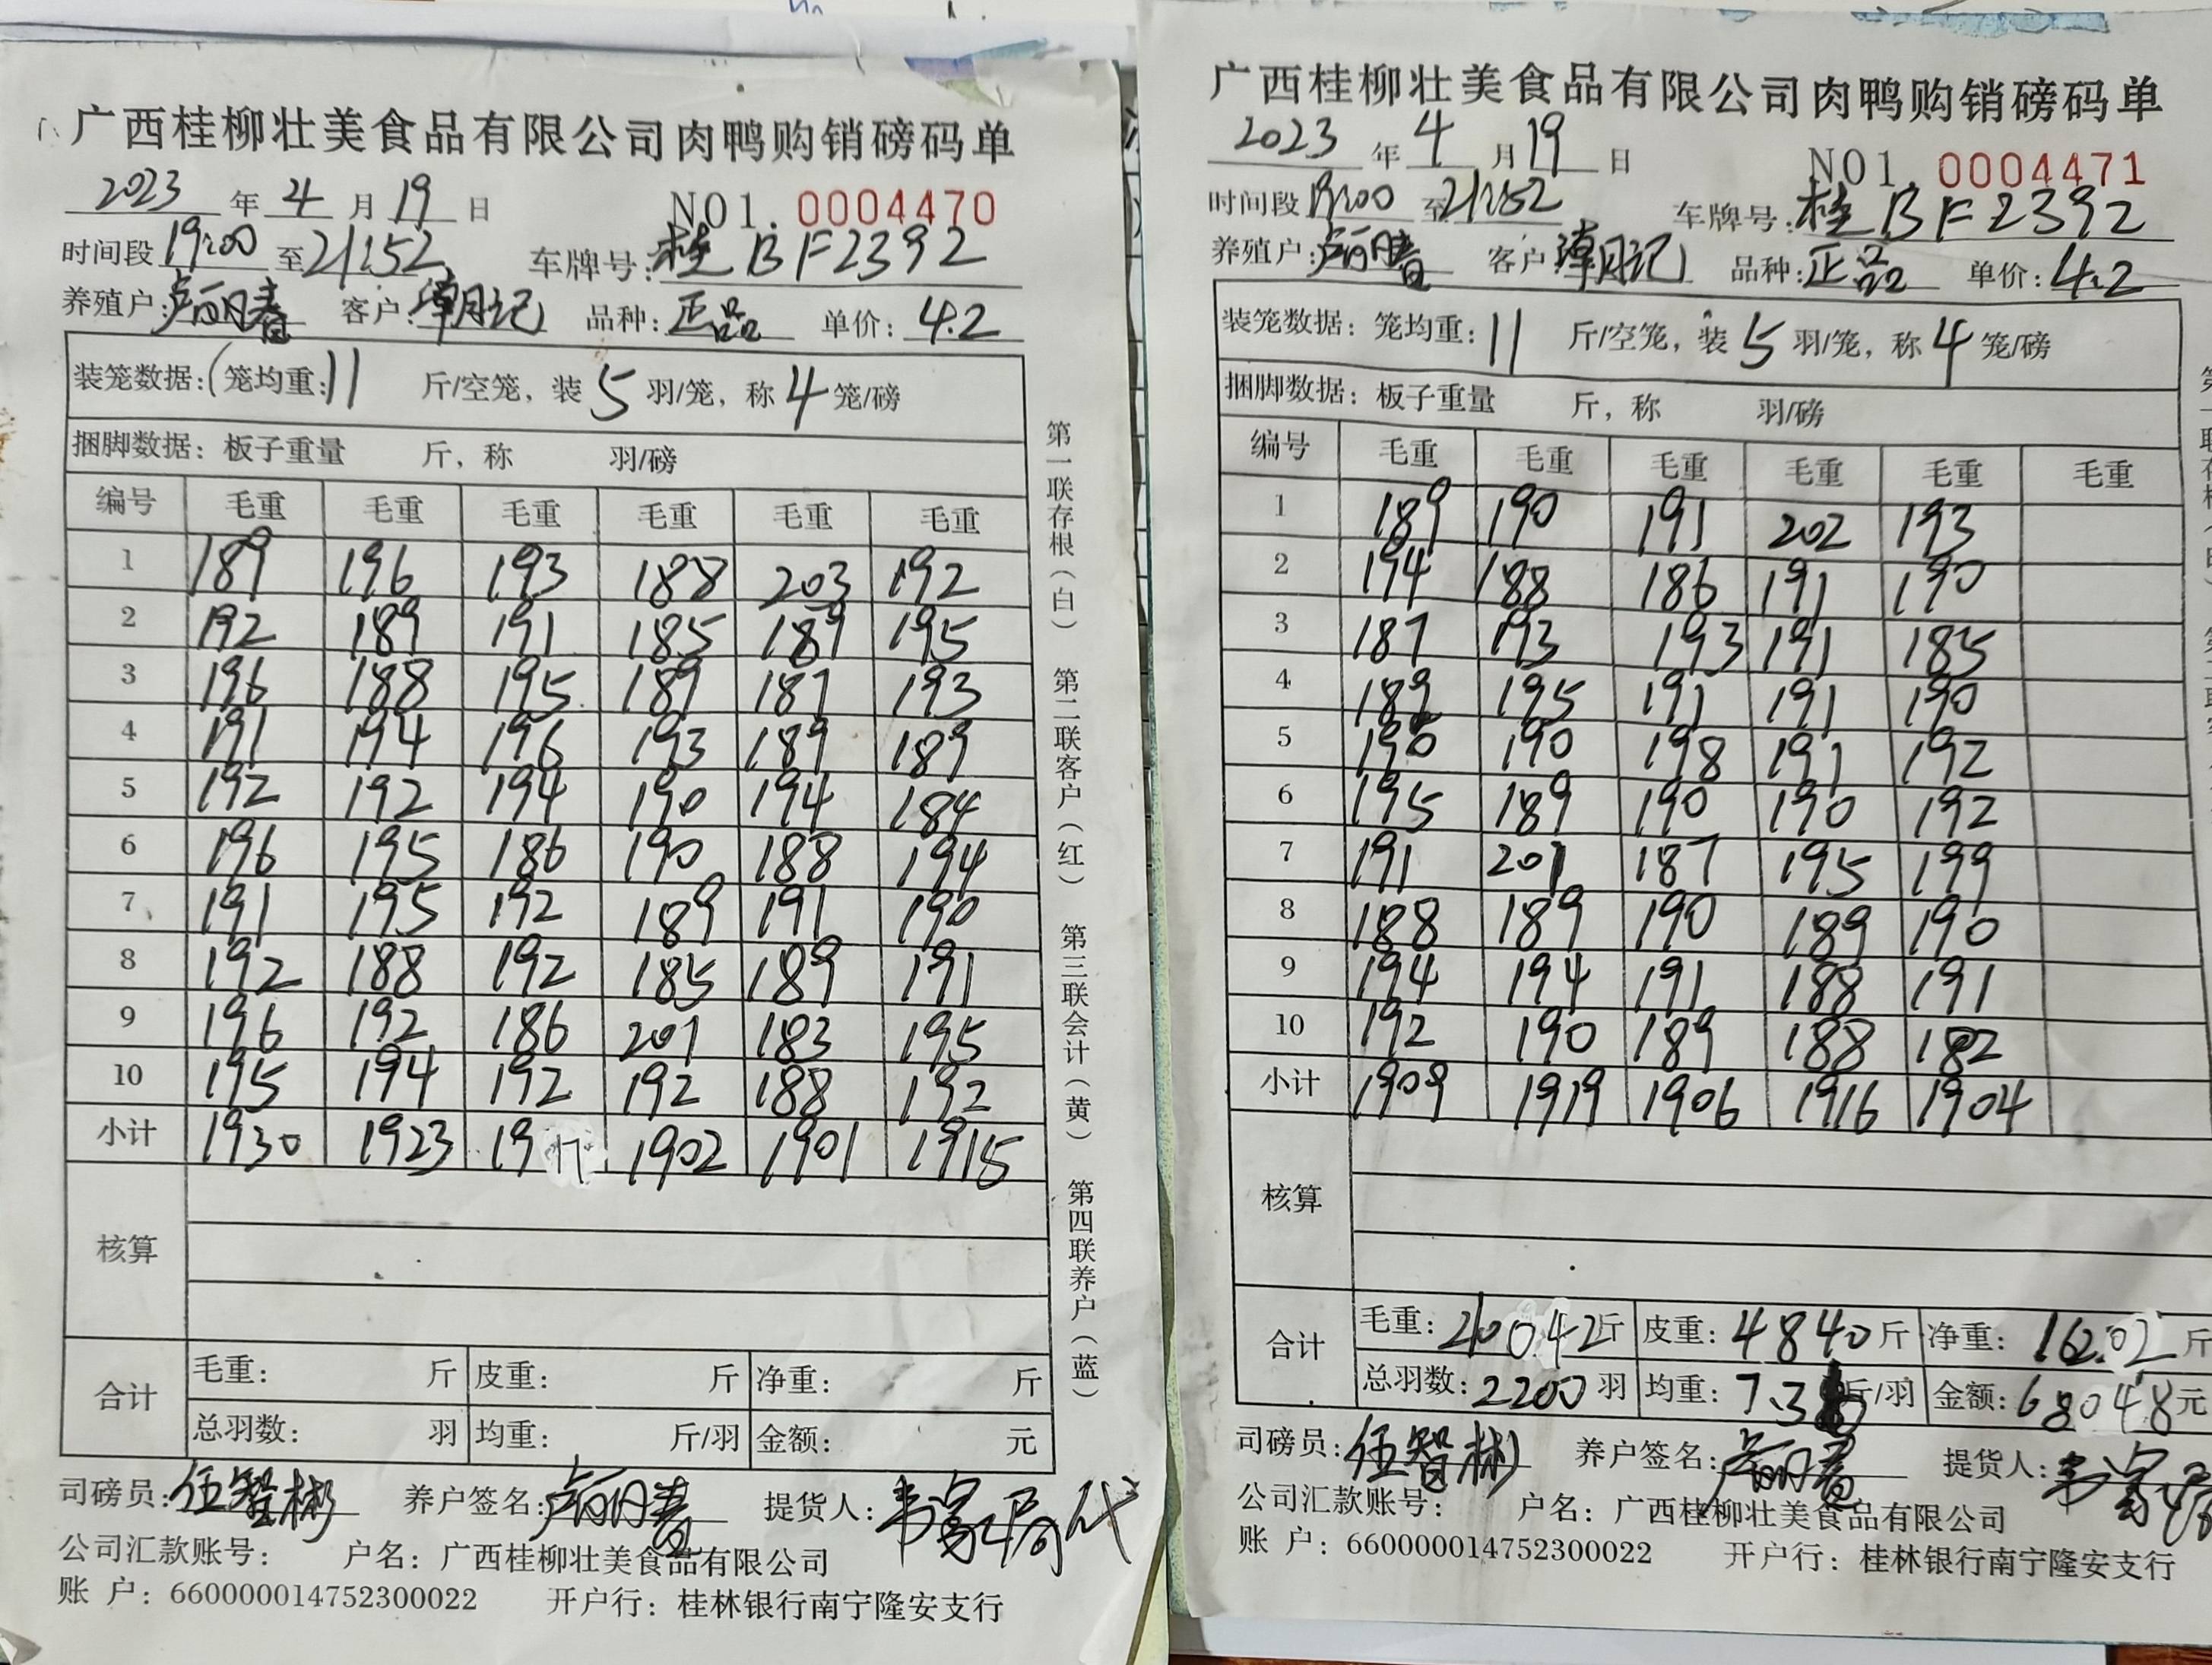 广西桂柳壮美食品有限公司肉鸭购销磅码单
2023 年 4 月 19 日 NO1. 0004470
时间段 19:00 至 21:52 车牌号: 桂BF2392
养殖户: 卢丽春 客户: 潮记 品种: 正品 单价: 4.2
装笼数据:(笼均重: 11 斤/空笼, 装 5 羽/笼, 称 4 笼/磅
捆脚数据: 板子重量 斤, 称 羽/磅
编号 毛重 毛重 毛重 毛重 毛重 毛重
1 189 196 193 188 203 192
2 192 189 191 185 189 195
3 196 188 195 189 187 193
4 191 194 196 193 189 189
5 192 192 194 190 194 184
6 196 195 186 190 188 194
7 191 195 192 189 191 190
8 192 188 192 185 189 191
9 196 192 186 201 183 195
10 195 194 192 192 188 192
小计 1930 1923 1917 1902 1901 1915
核算
合计 毛重: 斤 皮重: 斤 净重: 斤
总羽数: 羽 均重: 斤/羽 金额: 元
司磅员: 伍智彬 养户签名: 卢丽春 提货人: 韦 代
公司汇款账号: 户名: 广西桂柳壮美食品有限公司
账 户: 660000014752300022 开户行: 桂林银行南宁隆安支行
第一联存根(白) 第二联客户(红) 第三联会计(黄) 第四联养户(蓝)
广西桂柳壮美食品有限公司肉鸭购销磅码单
2023 年 4 月 19 日 NO1. 0004471
时间段 19:00 至 21:52 车牌号: 桂BF2392
养殖户: 卢丽春 客户: 潮记 品种: 正品 单价: 4.2
装笼数据: 笼均重: 11 斤/空笼, 装 5 羽/笼, 称 4 笼/磅
捆脚数据: 板子重量 斤, 称 羽/磅
编号 毛重 毛重 毛重 毛重 毛重 毛重
1 189 190 191 202 193
2 194 188 186 191 190
3 187 193 193 191 185
4 189 195 191 191 190
5 190 190 198 191 192
6 195 189 190 190 192
7 191 201 187 195 199
8 188 189 190 189 190
9 194 194 191 188 191
10 192 190 189 188 182
小计 1909 1919 1906 1916 1904
核算
合计 毛重: 21042 斤 皮重: 4840 斤 净重: 16202 斤
总羽数: 2200 羽 均重: 7.36 斤/羽 金额: 68048 元
司磅员: 伍智彬 养户签名: 卢丽春 提货人: 韦
公司汇款账号: 户名: 广西桂柳壮美食品有限公司
账 户: 660000014752300022 开户行: 桂林银行南宁隆安支行